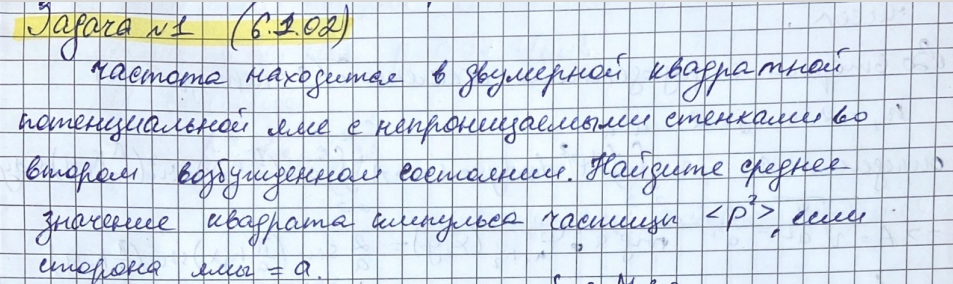 Задача №1 (6.1.02)
частота находится в двумерной квадратной
потенциальной яме с непроницаемыми стенками во
втором возбужденном состоянии. Найдите среднее
значение квадрата импульса частицы <p²>, если
сторона ямы = a.